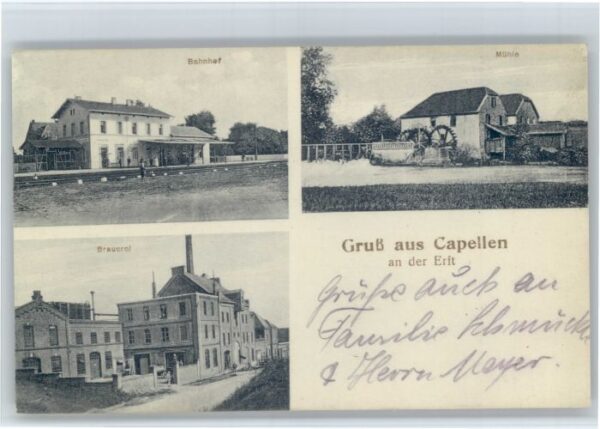 Bahnhof
Mühle
Brauerei
Gruß aus Capellen
an der Erft
Grüße auch an
Familie Schmück
& Herrn Meyer.